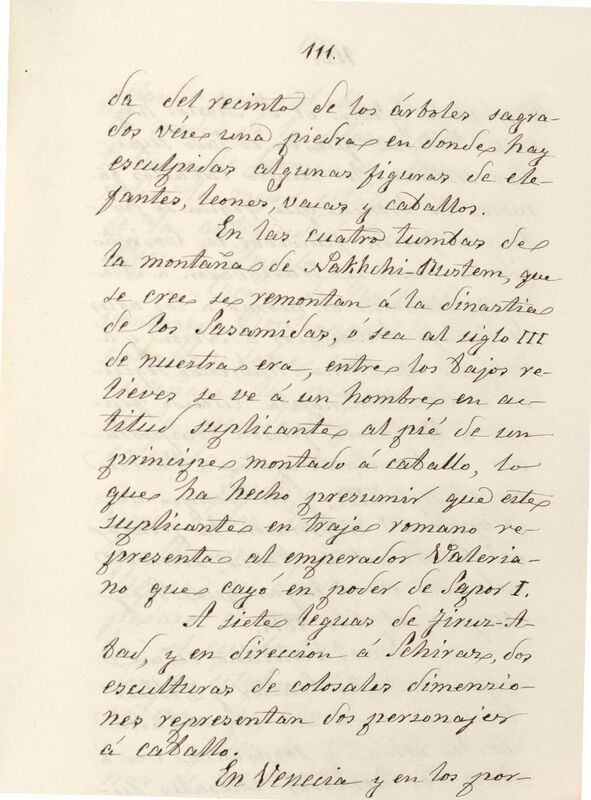 111.
da del recinto de los árboles sagra-
dos véese una piedra en donde hay
esculpidas algunas figuras de ele-
fantes, leones, vacas y caballos.
En las cuatro tumbas de
la montaña de Nakhchi-Rustem, que
se cree se remontan á la dinastia
de los Sasamidas, ó sea al siglo III
de nuestra era, entre los bajos re-
lieves se ve á un hombre en ac-
titud suplicante al pié de un
principe montado á caballo, lo
que ha hecho presumir que este
suplicante en traje romano re-
presenta al emperador Valeria-
no que cayó en poder de Sapor I.
A siete leguas de Firuz-A
bad, y en direccion á Schiraz, dos
esculturas de colosales dimensio-
nes representan dos personajes
á caballo.
En Venecia y en los por-